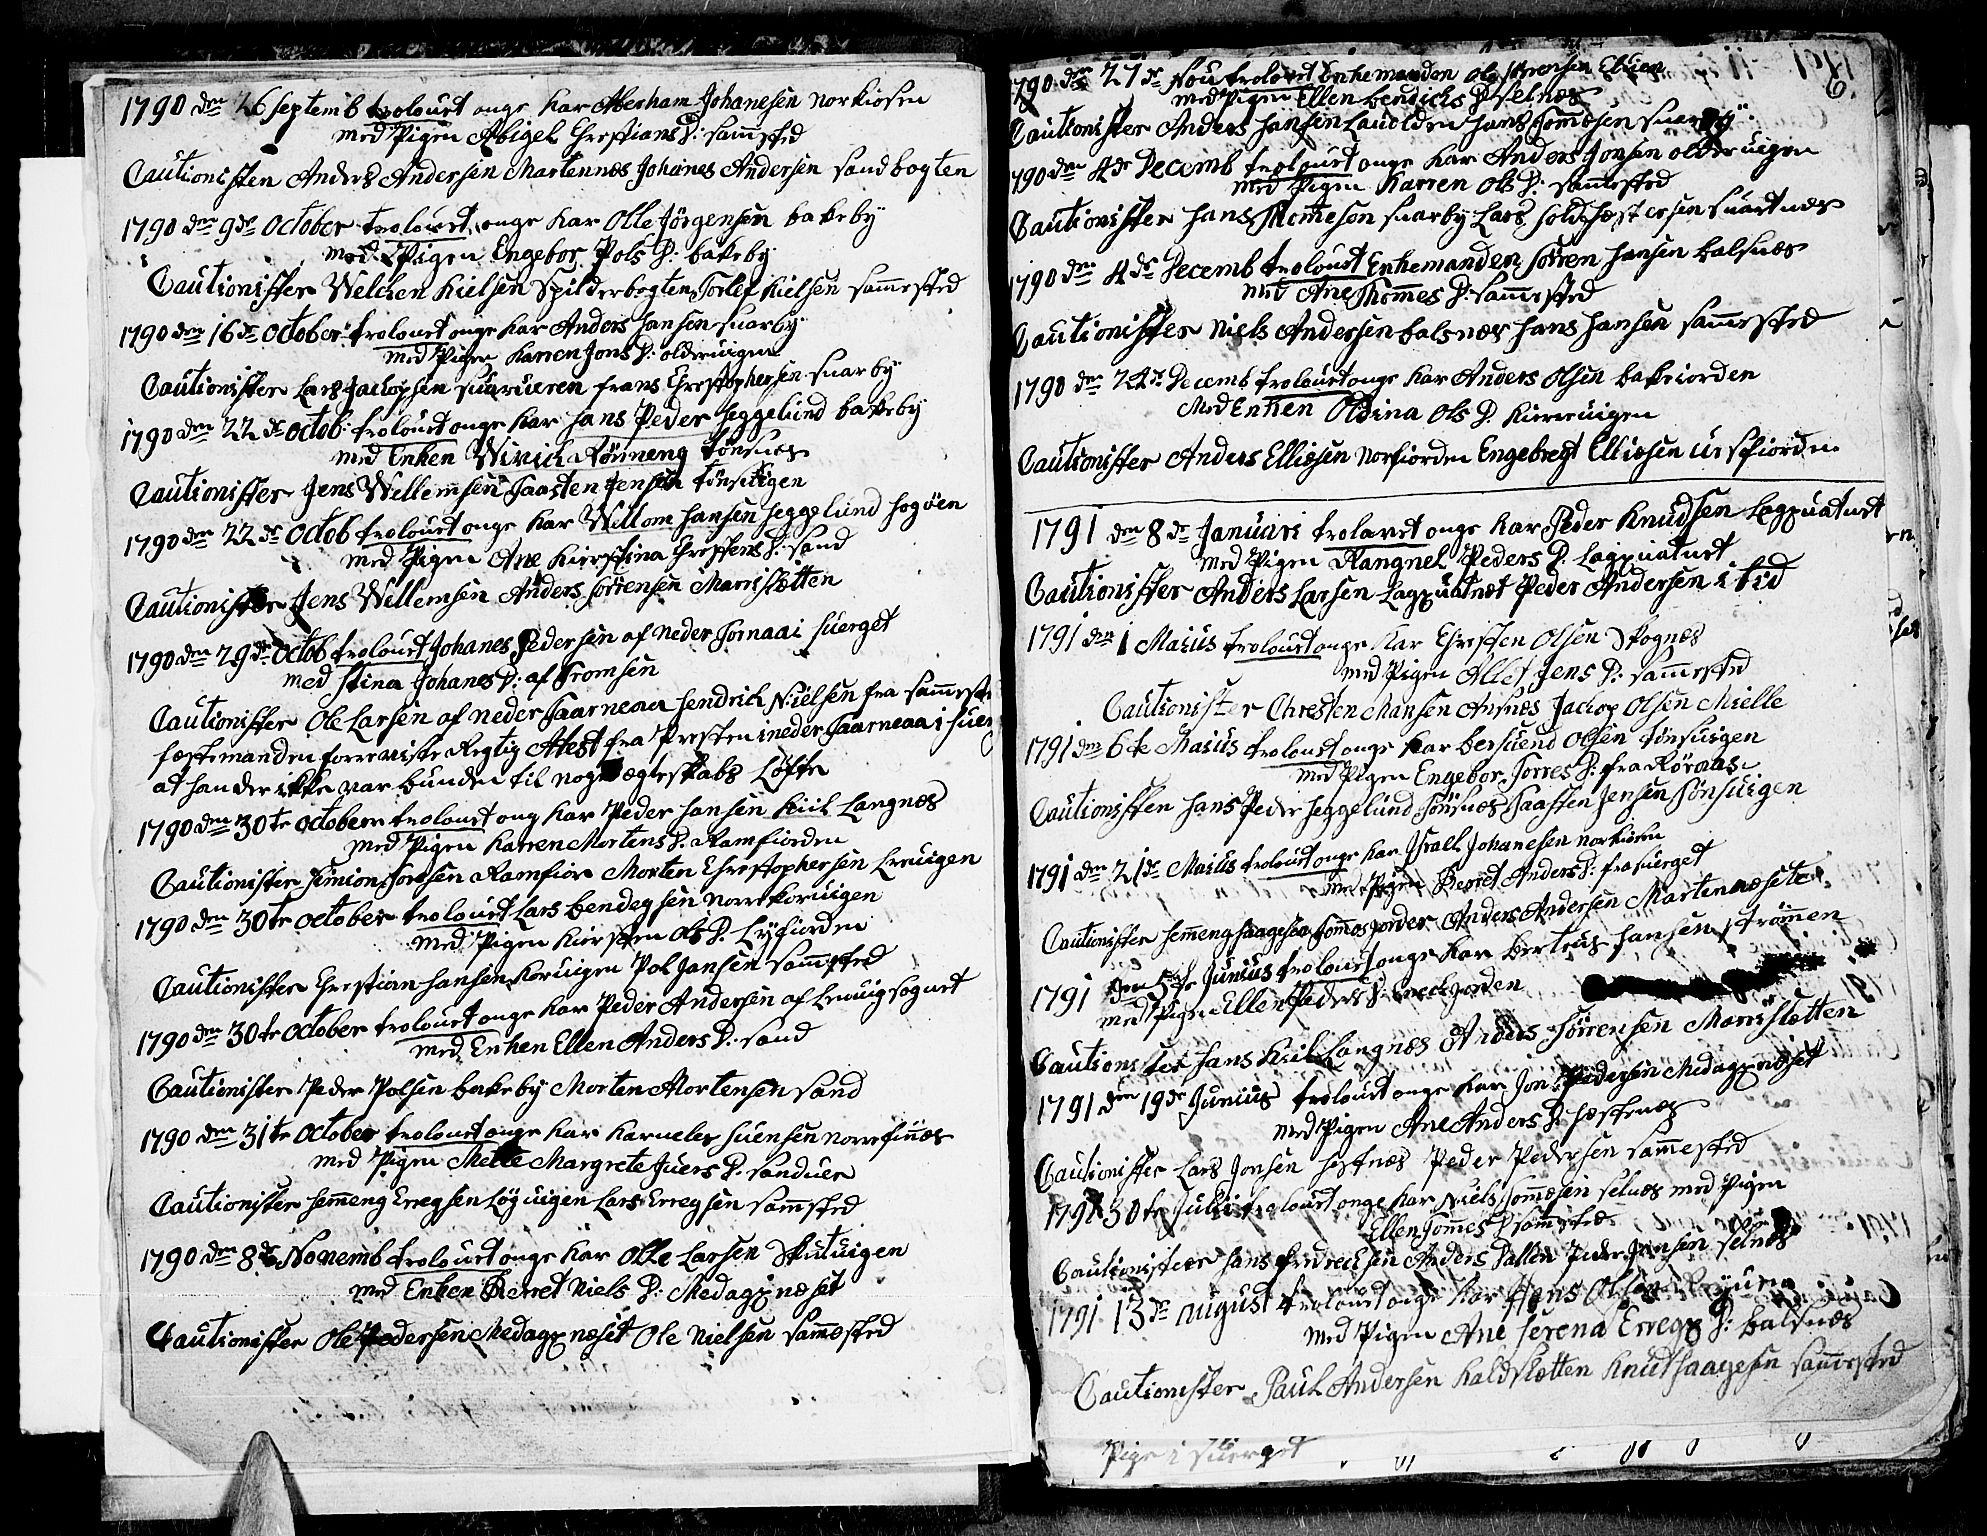 1790 den 26 Septemb trolouet onge kar Aberham Johanesen Norkiosen
med Pigen Abigel Chrestians D: samsted
Cautionisten Anders Andersen Martennæs Johanes Andersen sandbogten
1790 den 9de October trolouet onge kar Olle Jörgensen bakeby
med Pigen Engebor Pols D: bakeby
Cautionister Welchen Kielsen Spilderbogten Torlef Kielsen sammested
1790 den 16de October trolouet onge kar Anders Hansen snarby
med Pigen Karren Jons D: olderuigen
Cautionister Lars Jachopsen frans Chrestophersen snarby
1790 den 22de Octob: trolouet onge kar Hans Peder Heggelund bakeby
med Enken Wivich Rönneng Tönsnes
Cautionister Jens Wellemsen Taasten Jensen Tönsuigen
1790 den 22de Octob trolouet onge kar Willom Hansen Heggelund hogöen
med Pigen Ane Kierstina Chrestens D: sand
Cautionister Jens Wellemsen Anders Sörensen Marrislötten
1790 den 29de Octob trolouet Johanes Pedersen af Neder Tornaa i suerget
med Stina Johanes D: af Tromsen
Cautionister Ole Larsen af neder Taarneaa Hendrich Nielsen fra sammeste
fæstemanden forreviste Regtig Atest fra Presten i neder Taarneaa i suer
at han der ikke var bunden til noget ægteskabs Löfte
1790 den 30te October trolouet ong kar Peder Hansen Kiil Langnæs
med Pigen Karren Mortens D: Ramfiorden
Cautionister Simion Ramfior Morten Chrestophersen Lreuigen
1790 den 30te October trolouet Lars Bendegsen Norrekoruigen
med Pigen Kiersten Ols D. Lyfiorden
Cautionister Chrestian Hansen Koruigen Pol Jansen samsted
1790 den 30te October trolouet onge kar Peder Andersen af Lenuigsognet
med Enken Ellen Anders D: sand
Cautionister Peder Polsen bakeby Morten Mortensen sand
1790 den 31te October trolouet onge kar Karneles Suensen Norrefines
med Pigen Mette Margrete Juers D. sanduer
Cautionister Hemeng Erregsen Löguigen Lars Erregsen samsted
1790 den 8de Novemb trolouet onge kar Olle Larsen Skutuigen
med Enken Berret Niels D: Medagxnæset
Cautionister Ole Pedersen Medagxnæset Ole Nielsen samested
6.
1790 den 27de Nou trolouet Enkemanden Ole Sörensen
med Pigen Ellen bendichs D selnæs
Cautionister Anders Hansen Hans Tomesen snarby
1790 den 4de Decemb trolouet onge kar Anders Jonsen olderuigen
med Pigen Karren Ols D: samested
Cautionister Hans Thomeson snarby Lars suartnæs
1790 den 4de Decemb trolouet Enkemanden Sörren Hansen balsnæs
med Ane Thommes D: sammested
Cautionister Niels Andersen balsnæs Hans Hansen sammested
1790 den 24de Decemb trolouet onge kar Anders Olsen bakeiorden
med Enken Oldina Ols D. Kierreuigen
Cautionister Anders Elliesen Norfiorden Engebregt Elliesen ursfiorden
1791 den 8de Januari trolavet onge kar Peder Knudsen Lagxuatnet
med Pigen Rangnel Peders D. Lagxuatnet
Cautionister Anders Larsen Lagxuatnet Peder Andersen i tid
1791 den 1 Maius trolouet onge kar Chresten Olsen Skognæs
med Pigen Allet Jens D: samested
Cautionister Chresten Mansen Ansnæs Jachop Olsen Mielle
1791 den 6te Maius trolouet onge kar bersuend Olsen Tönsuigen
med Pigen Engebor Torres D: fra Röraas
Cautionisten Hans Peder Heggelund Tönsnæs Taasten Jensen Tönsuigen
1791 den 21de Maius trolouet onge kar Israel Johanesen Norkiosen
med Pigen Berret Anders D: fra suerget
Cautionister Hemeng Haagesen Anders Andersen Martennæsete
1791 den 5te Junius trolouet onge kar berteus Hansen strömen
med Pigen Ellen Peders D:
Cautionister Hans Kiil Langnæs Anders Sörensen Marrislötten
1791 den 19de Junius trolouet onge kar Jon Pedersen Medagxnæset
med Pigen Ane Anders D: hæstenæs
Cautionister Lars Jonsen hestnæs Peder Pedersen sammested
1791 30te Juli trolouet onge kar Niels Tomesen selnæs med Pigen
Ellen Tomes D samested
Cautionister Hans fredrecksen Anders Dallen Peder Jensen selnæs
1791 13de august trolouet onge kar Hans Olsen
med Pigen Ane Serena Erregx D: balsnæs
Cautionister Paul Andersen Kaldslötten Knud Haagesen sammested
Pige i suerget